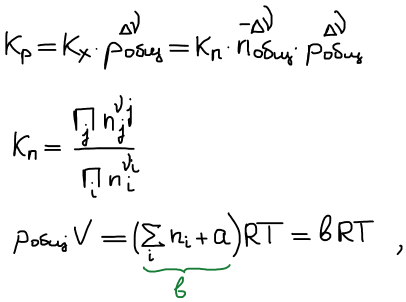 Kₚ = Kₓ · p_общ^Δν = Kₙ · n_общ^-Δν · p_общ^Δν
Kₙ = ∏_j n_j^ν_j / ∏_i n_i^ν_i
p_общ V = (∑_i n_i + a)RT = bRT ,
b